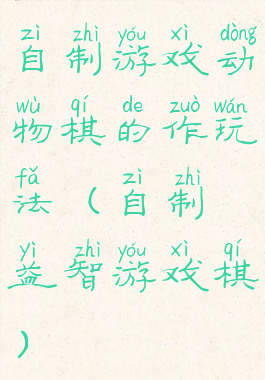 zì zhì yóu xì dòng
自制游戏动
wù qí de zuò wán
物棋的作玩
fǎ zì zhì
法（自制
yì zhì yóu xì qí
益智游戏棋
）